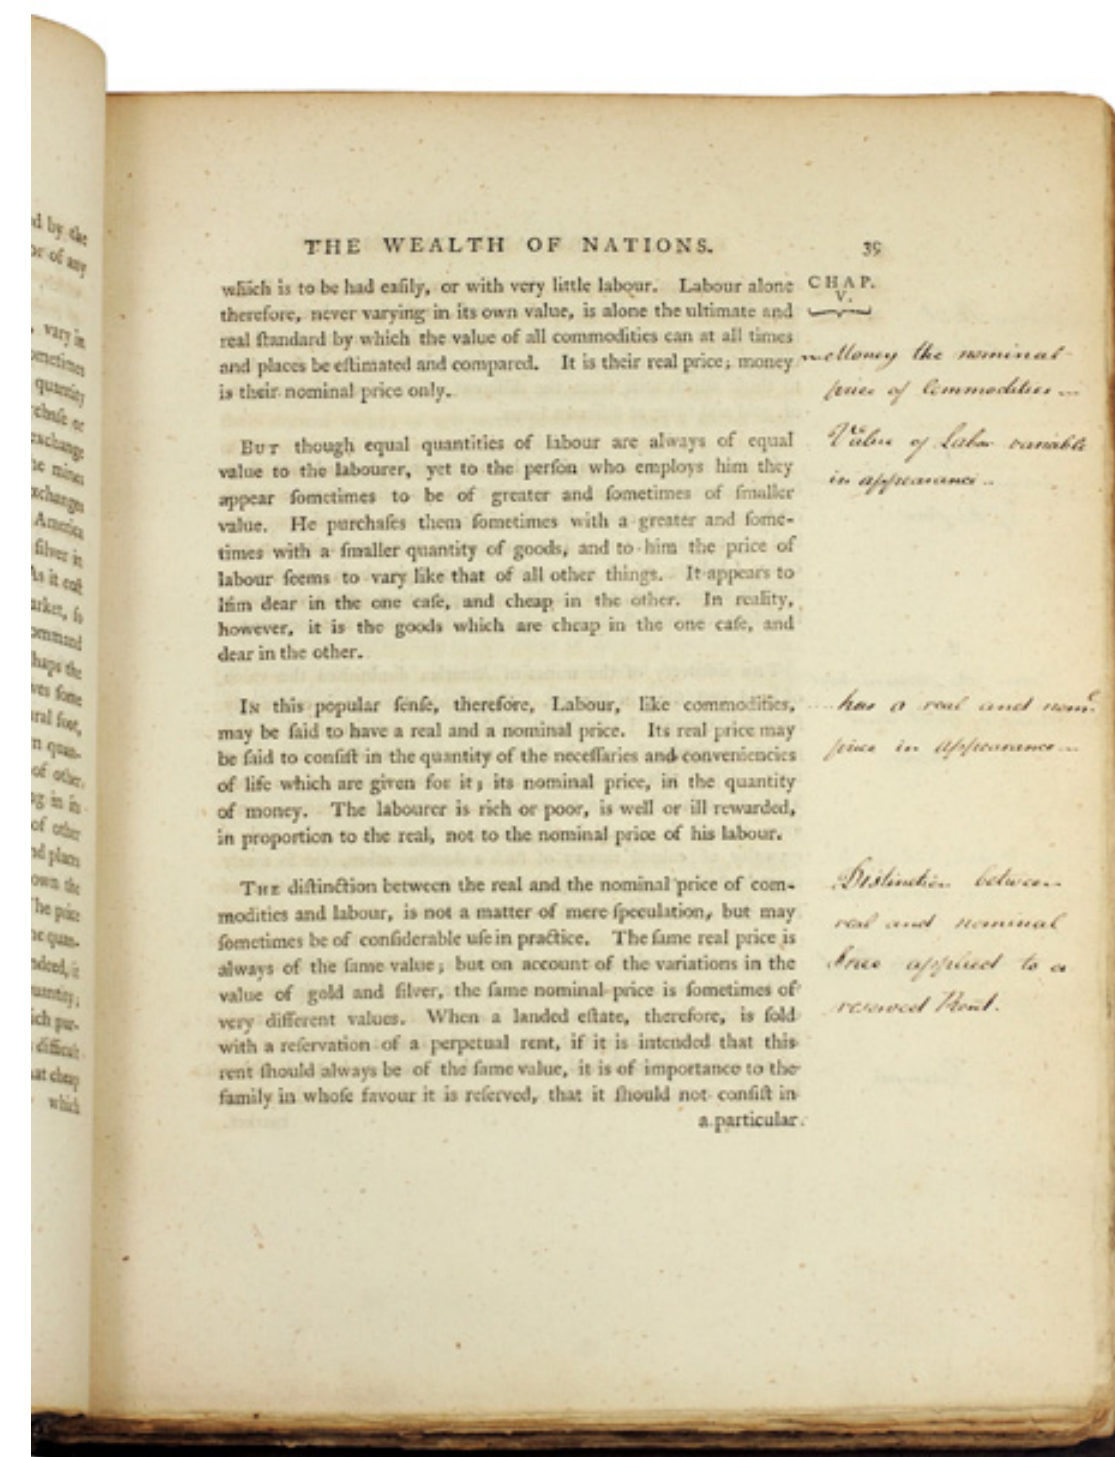 d by the
or of any
vary in
ometimes
quantity
rchaſe or
exchange
he mines
xchanges
America
ſilver in
As it coſt
arket, ſo
ommand
haps the
ves ſome
ural foot,
n quan-
of other
ng in its
of other
nd place
own the
The price
he quan-
ndeed, it
uantity;
ich pur-
difficult
at cheap
which
THE WEALTH OF NATIONS. 39
which is to be had eaſily, or with very little labour. Labour alone
therefore, never varying in its own value, is alone the ultimate and
real ſtandard by which the value of all commodities can at all times
and places be eſtimated and compared. It is their real price; money
is their nominal price only.
BUT though equal quantities of labour are always of equal
value to the labourer, yet to the perſon who employs him they
appear ſometimes to be of greater and ſometimes of ſmaller
value. He purchaſes them ſometimes with a greater and ſome-
times with a ſmaller quantity of goods, and to him the price of
labour ſeems to vary like that of all other things. It appears to
him dear in the one caſe, and cheap in the other. In reality,
however, it is the goods which are cheap in the one caſe, and
dear in the other.
IN this popular ſenſe, therefore, Labour, like commodities,
may be ſaid to have a real and a nominal price. Its real price may
be ſaid to conſiſt in the quantity of the neceſſaries and conveniencies
of life which are given for it; its nominal price, in the quantity
of money. The labourer is rich or poor, is well or ill rewarded,
in proportion to the real, not to the nominal price of his labour.
THE diſtinction between the real and the nominal price of com-
modities and labour, is not a matter of mere ſpeculation, but may
ſometimes be of conſiderable uſe in practice. The ſame real price is
always of the ſame value; but on account of the variations in the
value of gold and ſilver, the ſame nominal price is ſometimes of
very different values. When a landed eſtate, therefore, is ſold
with a reſervation of a perpetual rent, if it is intended that this
rent ſhould always be of the ſame value, it is of importance to the
family in whoſe favour it is reſerved, that it ſhould not conſiſt in
a particular
CHAP.
V.
Money the nominal
price of Commodities
Value of Labor variable
in appearance
has a real and nom.l
price in appearance
Distinction between
real and nominal
Price applied to a
reserved Rent.